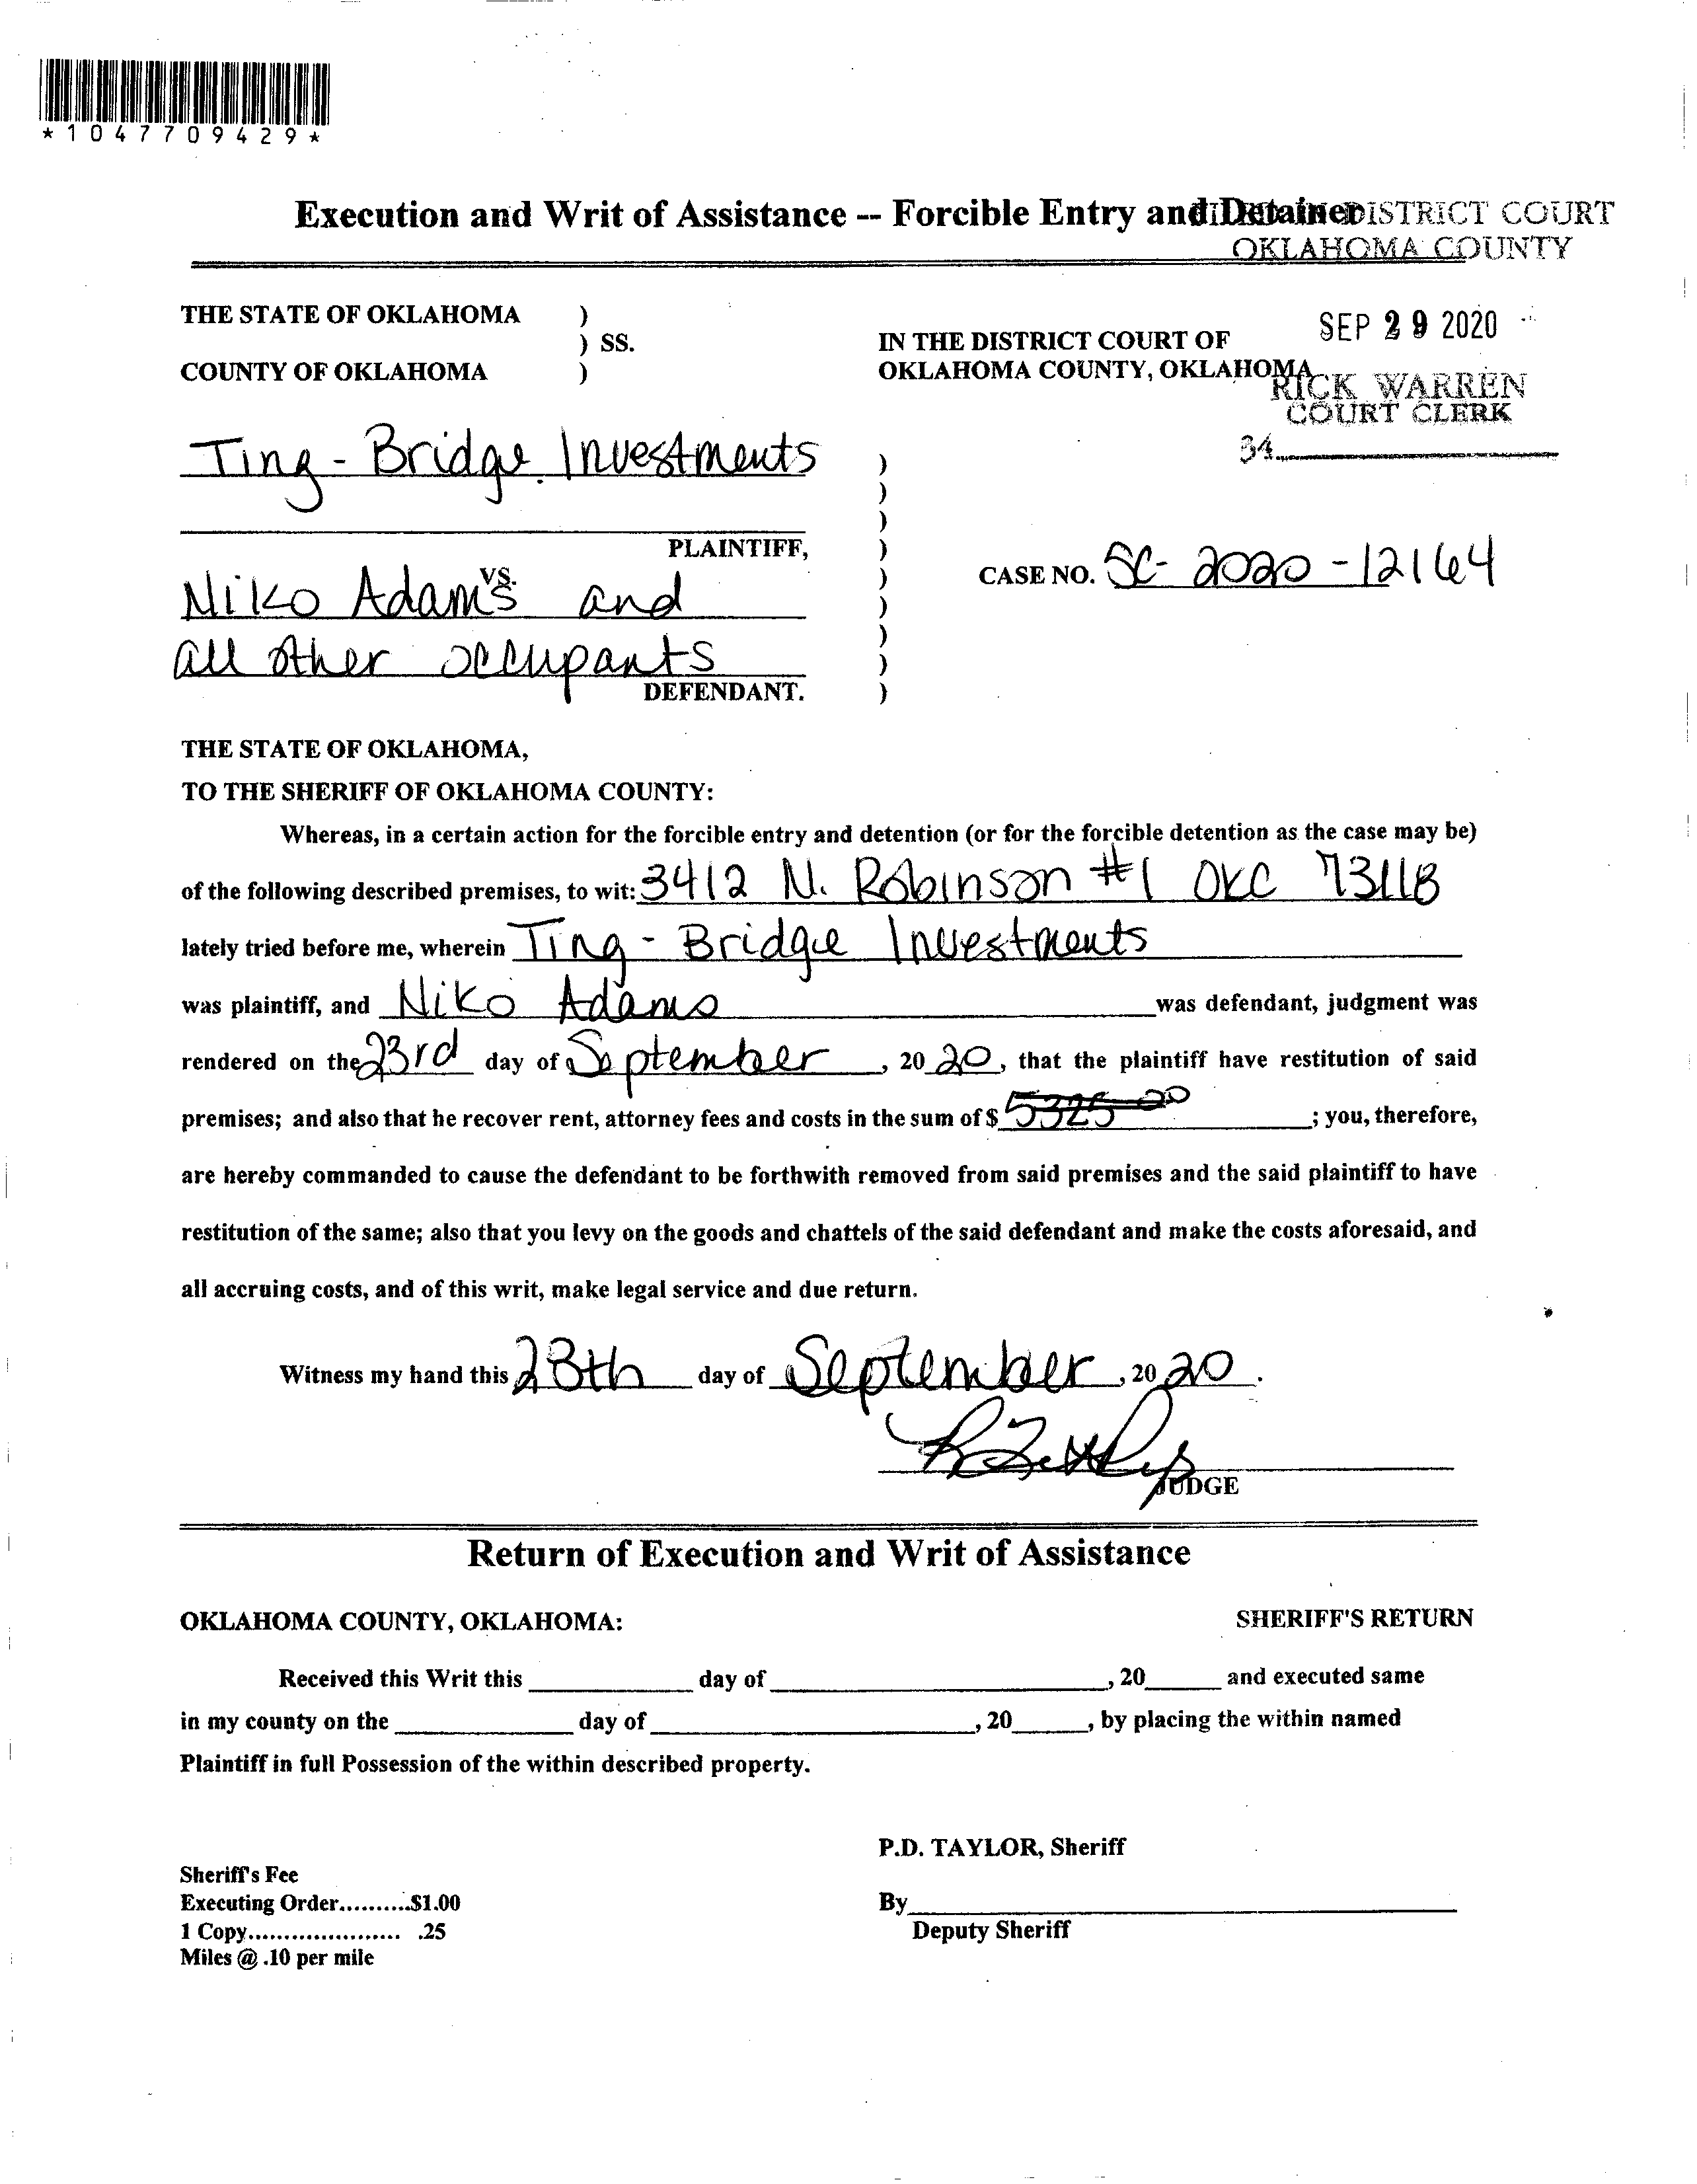 *1047709429*
Execution and Writ of Assistance -- Forcible Entry and Detainer
DISTRICT COURT
OKLAHOMA COUNTY
THE STATE OF OKLAHOMA )
) SS.
COUNTY OF OKLAHOMA )
IN THE DISTRICT COURT OF
OKLAHOMA COUNTY, OKLAHOMA
SEP 29 2020
RICK WARREN
COURT CLERK
34
Ting-Bridge Investments
PLAINTIFF,
vs.
Niko Adams and
all other occupants
DEFENDANT.
)
)
)
)
)
)
)
)
)
CASE NO. SC-2020-12164
THE STATE OF OKLAHOMA,
TO THE SHERIFF OF OKLAHOMA COUNTY:
Whereas, in a certain action for the forcible entry and detention (or for the forcible detention as the case may be)
of the following described premises, to wit: 3412 N. Robinson #1 OKC 73118
lately tried before me, wherein Ting-Bridge Investments
was plaintiff, and Niko Adams was defendant, judgment was
rendered on the 23rd day of September, 2020, that the plaintiff have restitution of said
premises; and also that he recover rent, attorney fees and costs in the sum of $ 5325 00; you, therefore,
are hereby commanded to cause the defendant to be forthwith removed from said premises and the said plaintiff to have
restitution of the same; also that you levy on the goods and chattels of the said defendant and make the costs aforesaid, and
all accruing costs, and of this writ, make legal service and due return.
Witness my hand this 28th day of September, 2020.
JUDGE
Return of Execution and Writ of Assistance
OKLAHOMA COUNTY, OKLAHOMA:
SHERIFF'S RETURN
Received this Writ this ____ day of ____, 20____ and executed same
in my county on the ____ day of ____, 20____, by placing the within named
Plaintiff in full Possession of the within described property.
P.D. TAYLOR, Sheriff
Sheriff's Fee
Executing Order..........$1.00
1 Copy..................... .25
Miles @ .10 per mile
By____
Deputy Sheriff